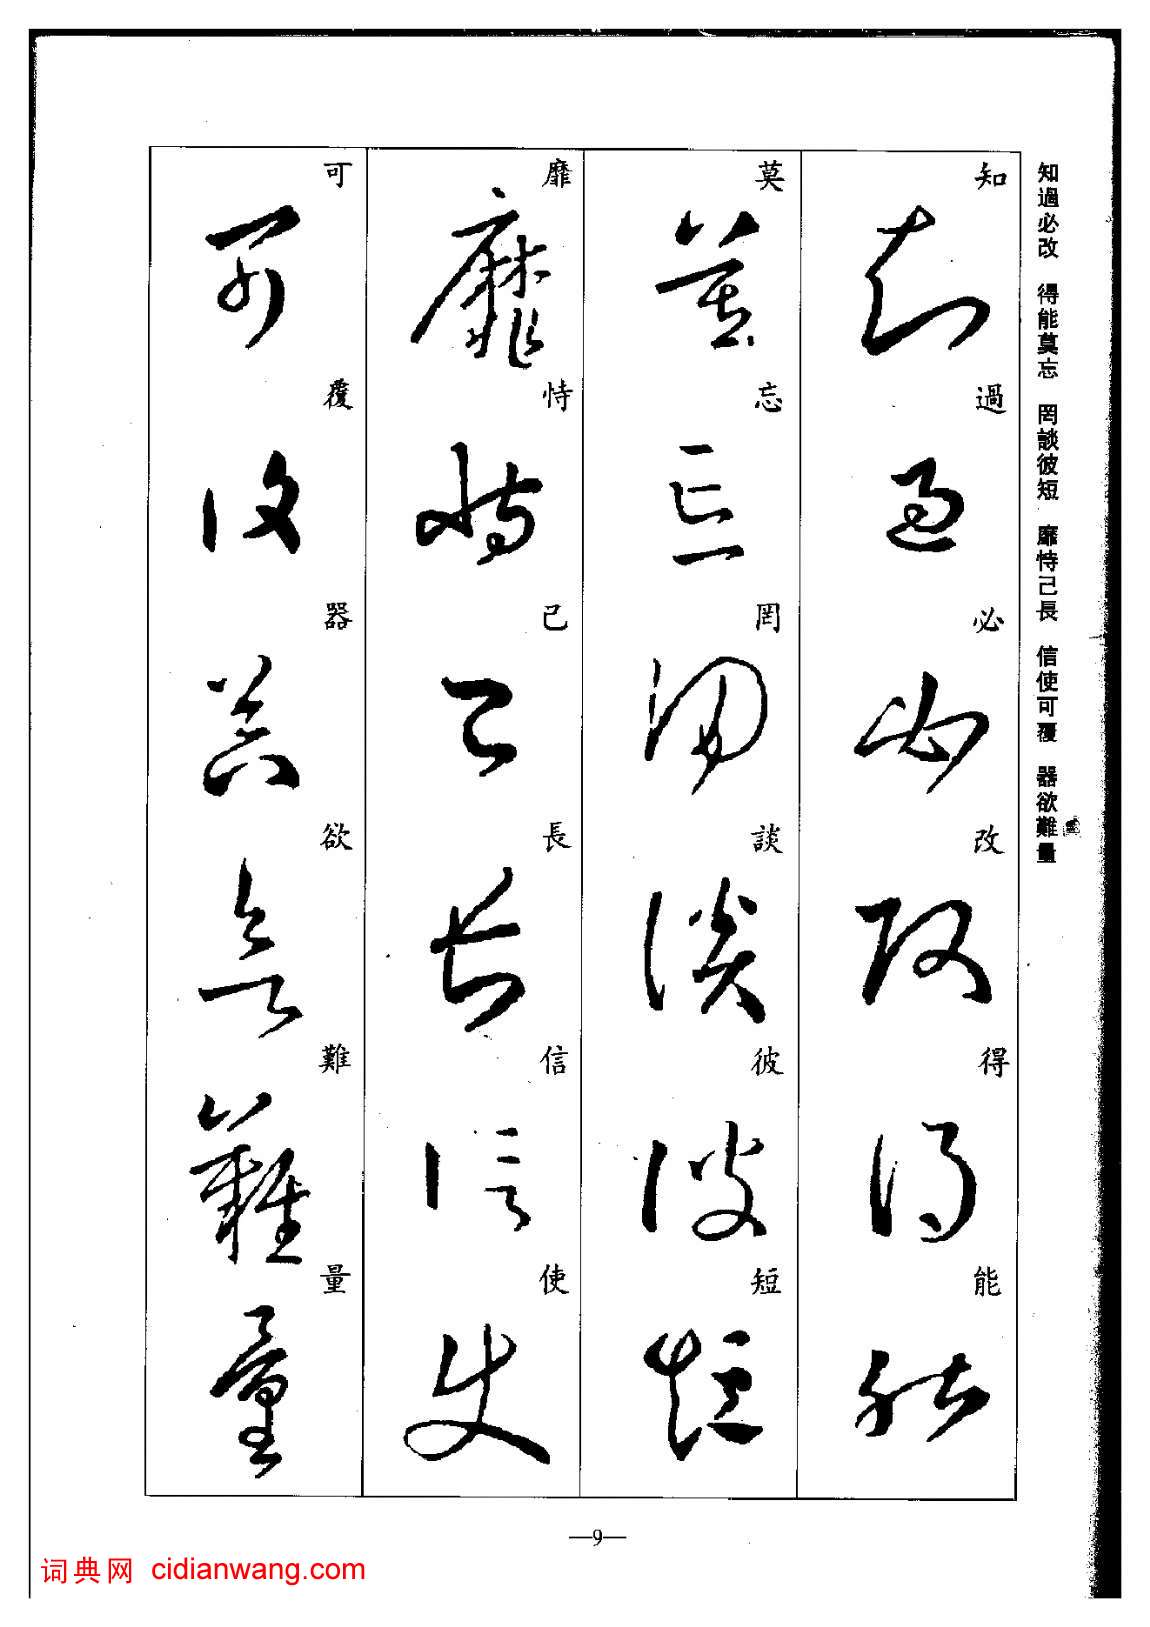 知過必改 得能莫忘 罔談彼短 靡恃己長 信使可覆 器欲難量
知過必改得能
莫忘罔談彼短
靡恃己長信使
可覆器欲難量
—9—
词典网 cidianwang.com